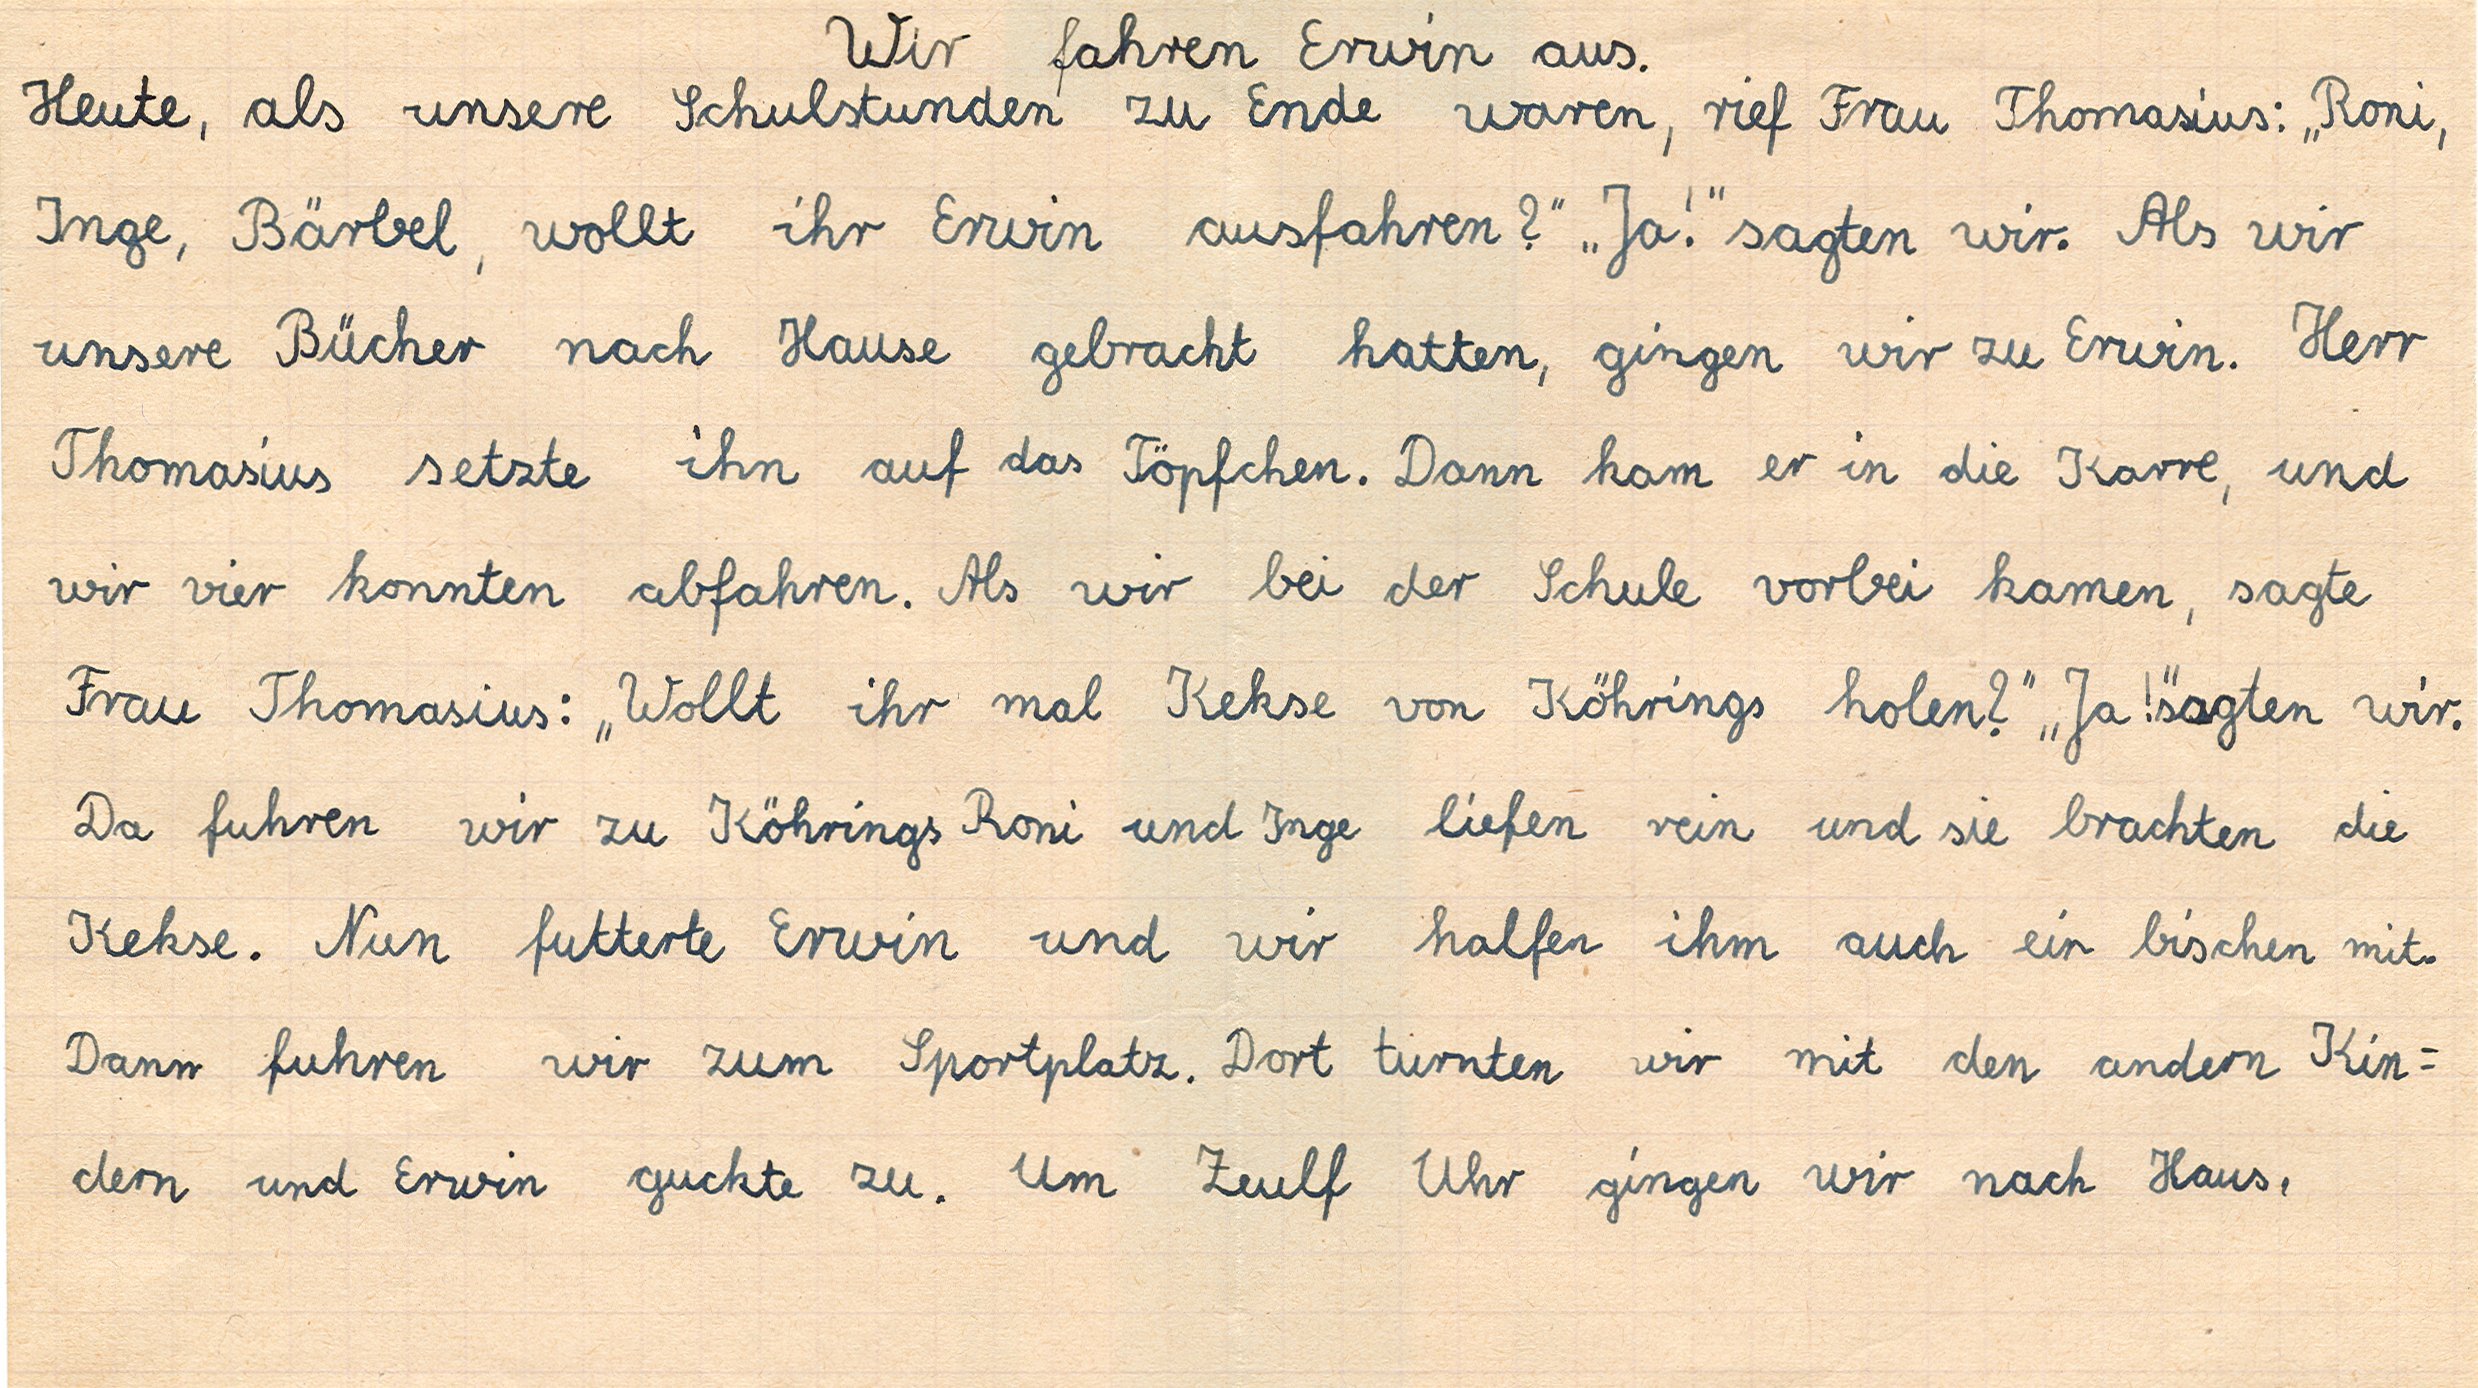 Wir fahren Erwin aus.
Heute, als unsere Schulstunden zu Ende waren, rief Frau Thomasius: „Roni,
Inge, Bärbel, wollt ihr Erwin ausfahren?“ „Ja!“ sagten wir. Als wir
unsere Bücher nach Hause gebracht hatten, gingen wir zu Erwin. Herr
Thomasius setzte ihn auf das Töpfchen. Dann kam er in die Karre, und
wir vier konnten abfahren. Als wir bei der Schule vorbei kamen, sagte
Frau Thomasius: „Wollt ihr mal Kekse von Köhrings holen?“ „Ja!“ sagten wir.
Da fuhren wir zu Köhrings Roni und Inge liefen rein und sie brachten die
Kekse. Nun futterte Erwin und wir halfen ihm auch ein bischen mit.
Dann fuhren wir zum Sportplatz. Dort turnten wir mit den andern Kin=
dern und Erwin guckte zu. Um Zwulf Uhr gingen wir nach Haus.